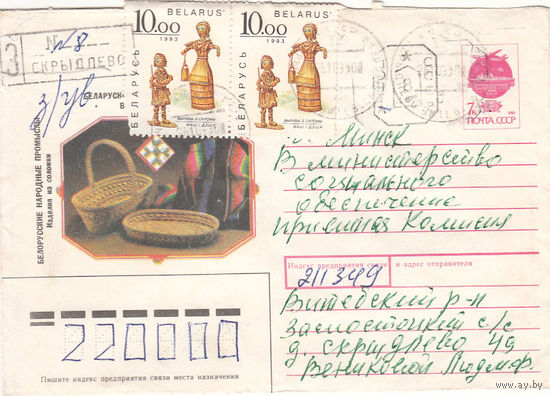 З
№ 8
СКРЫДЛЕВО
з/ув.
10.00
BELARUS'
1993
БЕЛАРУСЬ
ВЫРАБЫ З САЛОМЫ
10.00
BELARUS'
1993
БЕЛАРУСЬ
ВЫРАБЫ З САЛОМЫ
7
ПОЧТА СССР
БЕЛОРУССКИЕ НАРОДНЫЕ ПРОМЫСЛЫ
Изделия из соломки
г. Минск
В министерство
социального
обеспечение
приемная Комисия
Индекс предприятия связи и адрес отправителя
211349
Витебский р-н
с/с
д. Скрыдлево 49
Вениковой Людм. Ф.
220000
Пишите индекс предприятия связи места назначения
www.ay.by